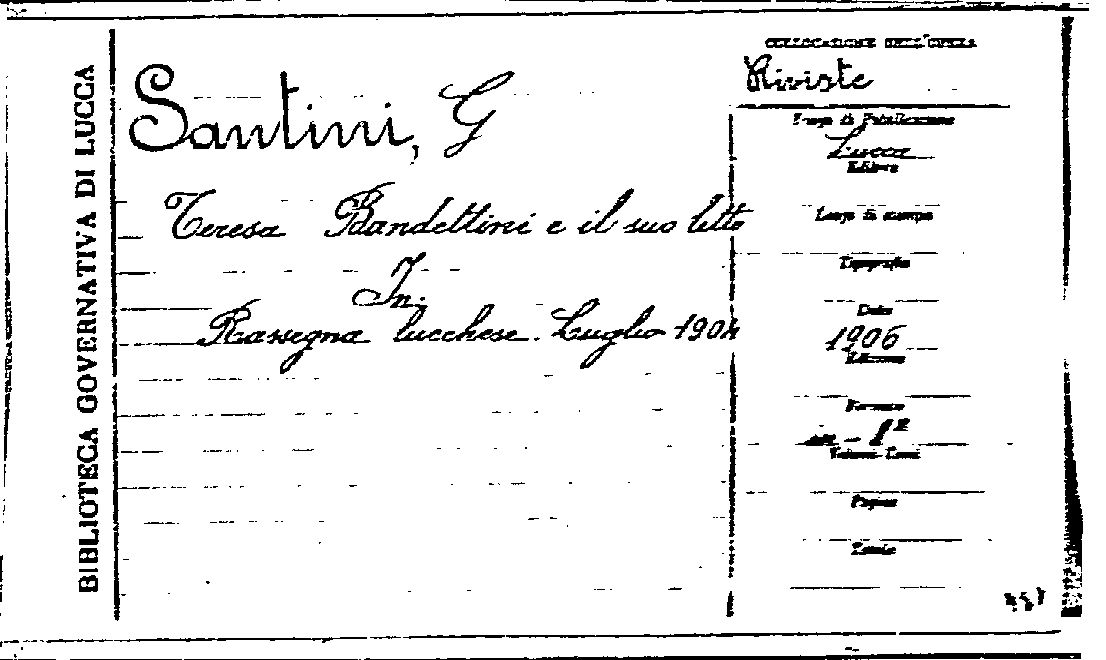 BIBLIOTECA GOVERNATIVA DI LUCCA
Santini, G
Teresa Bandettini e il suo letto
In.
Rassegna lucchese. Luglio 1904
COLLOCAZIONE DELL'OPERA
Riviste
Luogo di Pubblicazione
Lucca
Editore
Luogo di stampa
Tipografia
Data
1906
Edizione
Formato
in-8º
Volumi-Tomi
Pagine
Tavole